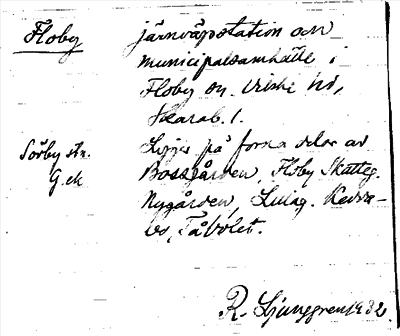 Floby
järnvägsstation och
municipalsamhälle i
Floby sn. Vilske hd,
Skarab. l.
Sörby stn.
G. ek
Ligger på forna delar av
Bossgården, Floby Skatteg.
Nygården,
bo, Tåbolet.
R. Ljunggren 1932.